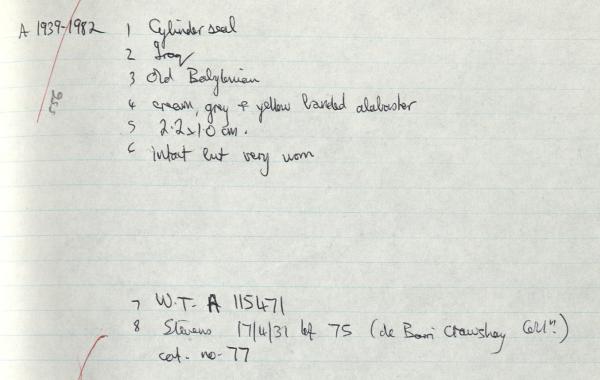 A 1939-1982 1 Cylinder seal
2 Iraq
3 Old Babylonian
4 cream, grey & yellow banded alabaster
5 2.2x1.0 cm.
6 intact but very worn
7 W.T- A 115471
8 Stevens 17/4/31 lot 75 (de Barri Crawshay Collⁿ.)
cat. no- 77